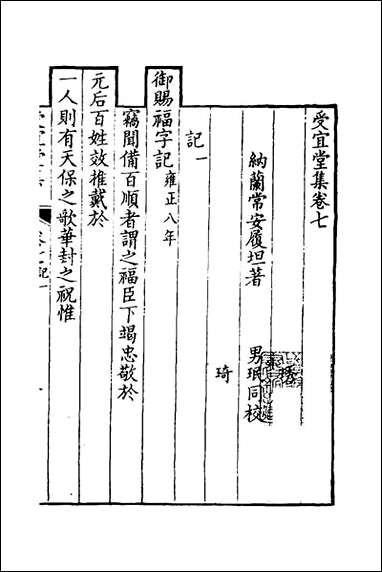 受宜堂集卷七
納蘭常安履坦著
男珉同校
琦
記一
御賜福字記雍正八年
竊聞備百順者謂之福臣下竭忠敬於
元后百姓效推戴於
一人則有天保之歌華封之祝惟
受宜堂集
卷七記一